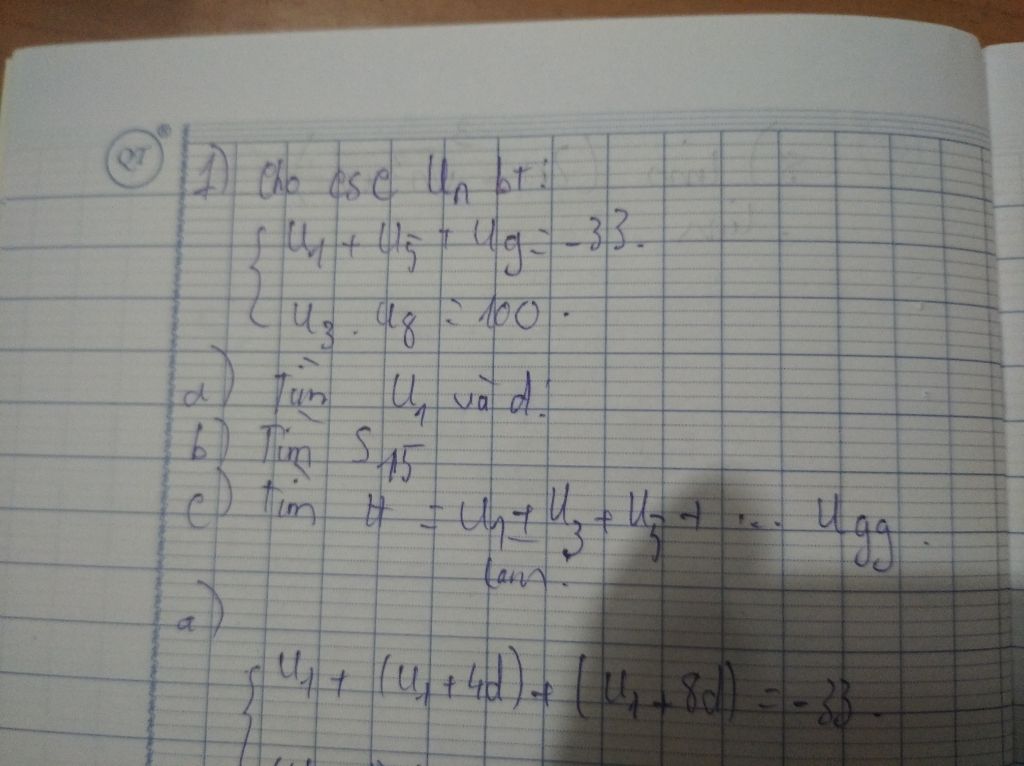 1) Cho csc Un bt:
U1 + U5 + U9 = -33.
U3 . U8 = 100.
a) Tìm U1 và d.
b) Tìm S15
c) Tìm H = U1 + U3 + U5 + ... U99.
Làm.
a)
U1 + (U1 + 4d) + (U1 + 8d) = -33.